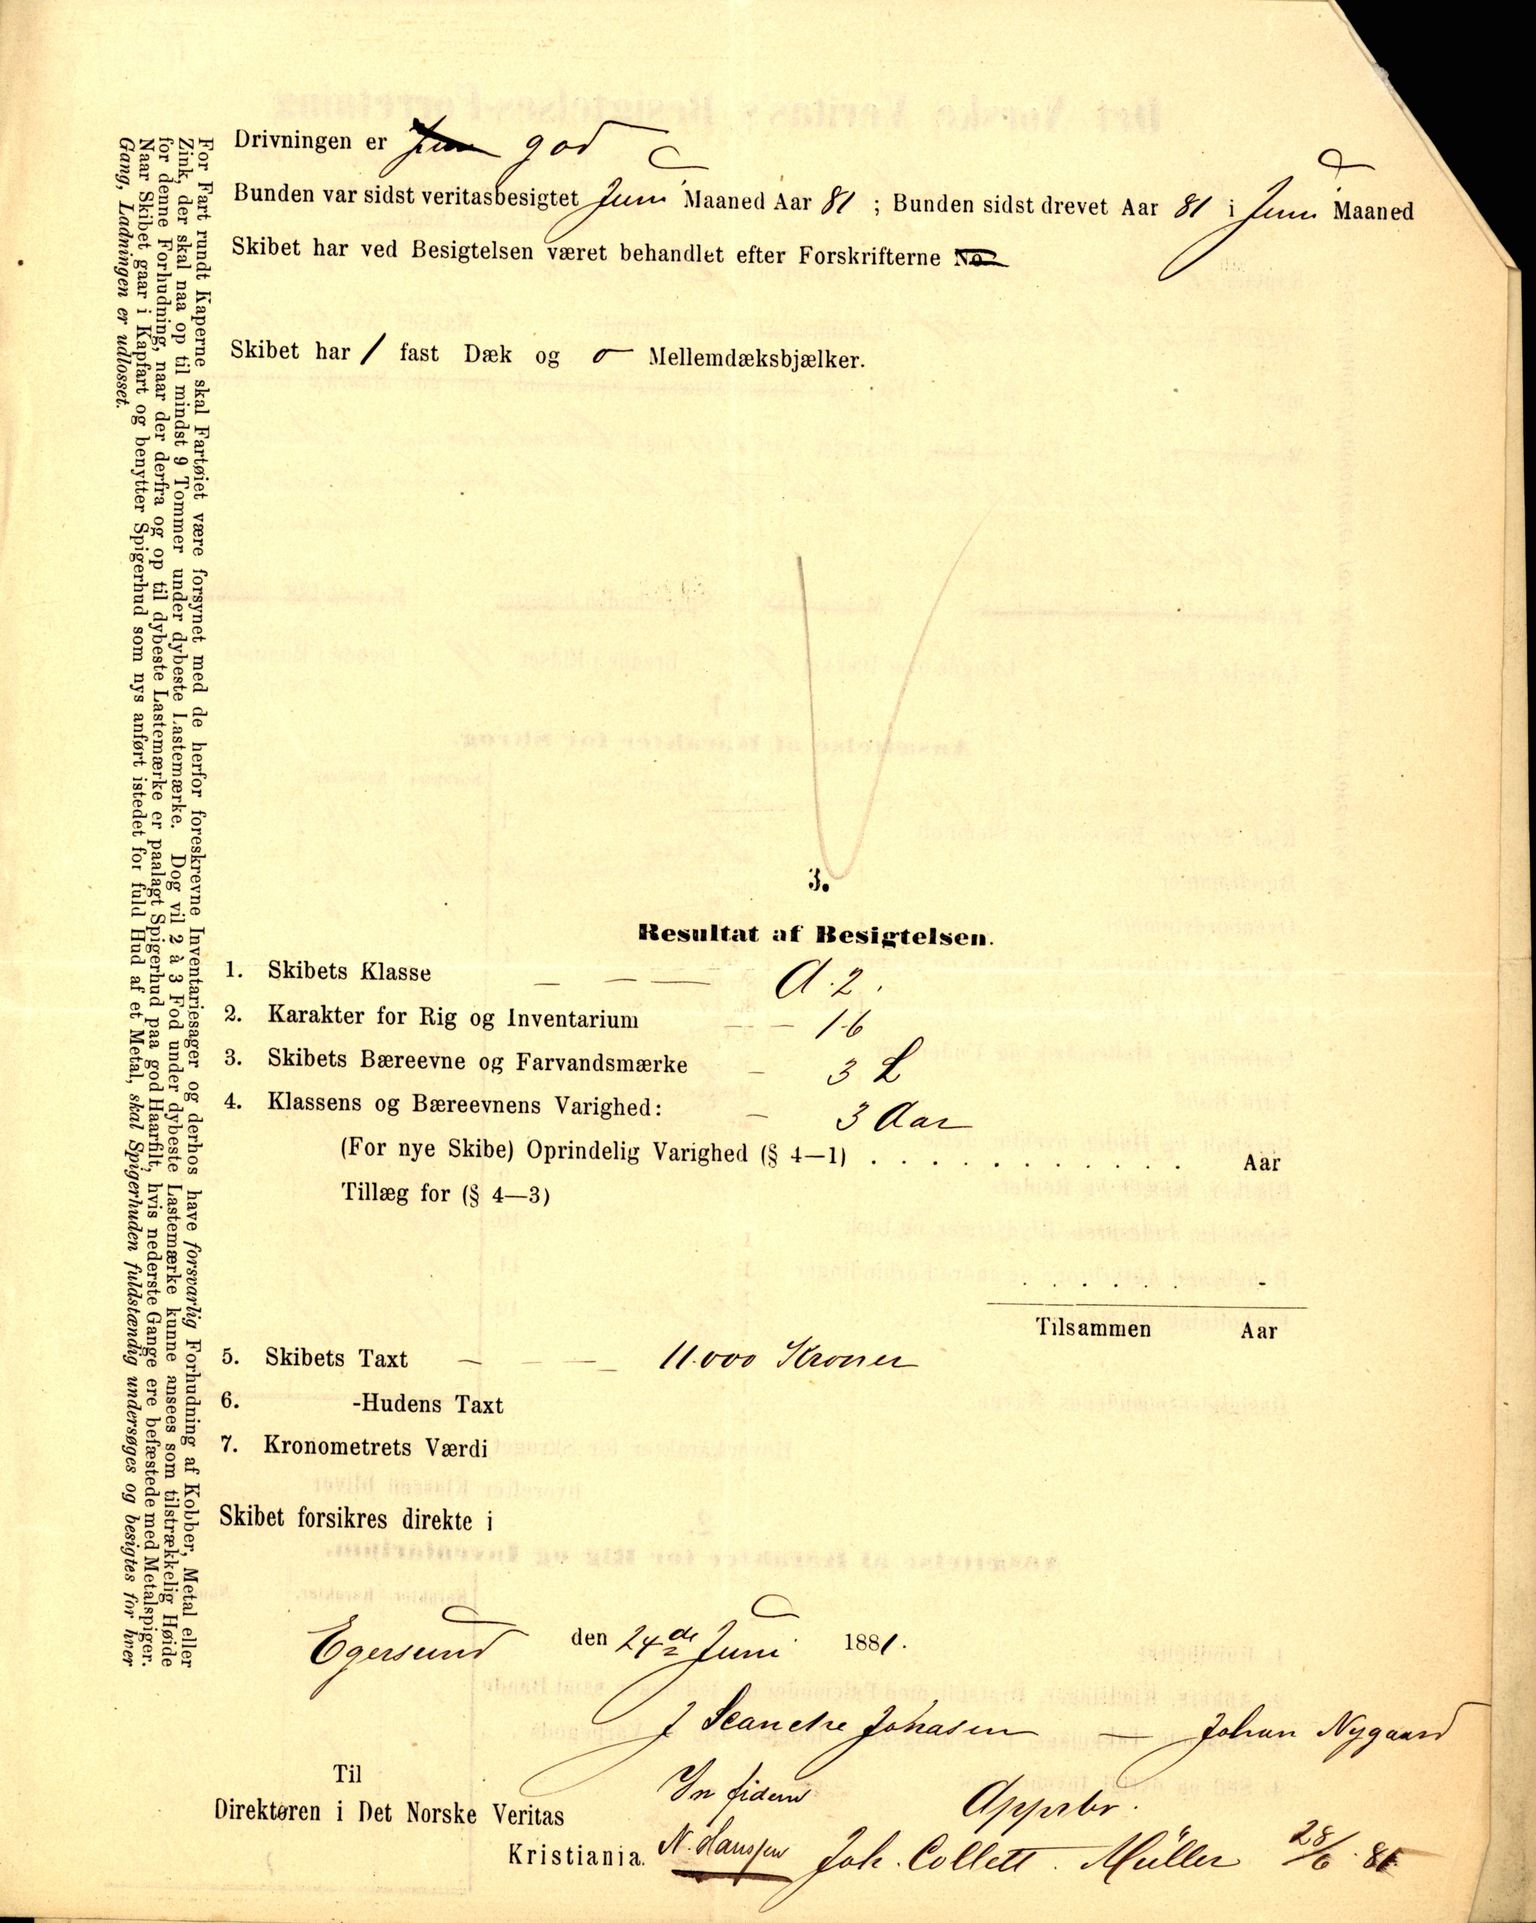 Drivningen er god
Bunden var sidst veritasbesigtet Juni Maaned Aar 81 ; Bunden sidst drevet Aar 81 i Juni Maaned
Skibet har ved Besigtelsen været behandlet efter Forskrifterne No
Skibet har 1 fast Dæk og o Mellemdæksbjælker.
3.
Resultat af Besigtelsen.
1. Skibets Klasse — — — A.2.
2. Karakter for Rig og Inventarium — — 1.6
3. Skibets Bæreevne og Farvandsmærke — 3 L
4. Klassens og Bæreevnens Varighed: — 3 Aar
(For nye Skibe) Oprindelig Varighed (§ 4—1) . . . . . . . . . . Aar
Tillæg for (§ 4—3)
. . . . . . -
Tilsammen Aar
5. Skibets Taxt — — — — 11.000 Kroner
6. -Hudens Taxt
7. Kronometrets Værdi
Skibet forsikres direkte i
Egersund den 24de Juni 1881.
J Johasen — Johan Nygaard
Til In fidem Approb.
Direktøren i Det Norske Veritas
Kristiania. N. Hanssen Joh. Collett. Müller 28/6 81
For Fart rundt Kaperne skal Fartøiet være forsynet med de herfor foreskrevne Inventariesager og derhos have forsvarlig Forhudning af Kobber, Metal eller
Zink, der skal naa op til mindst 9 Tommer under dybeste Lastemærke. Dog vil 2 à 3 Fod under dybeste Lastemærke kunne ansees som tilstrækkelig Høide
for denne Forhudning, naar der derfra og op til dybeste Lastemærke er paalagt Spigerhud paa god Haarfilt, hvis nederste Gange ere befæstede med Metalspiger.
Naar Skibet gaar i Kapfart og benytter Spigerhud som nys anført istedet for fuld Hud af et Metal, skal Spigerhuden fuldstændig undersøges og besigtes for hver
Gang, Ladningen er udlosset.